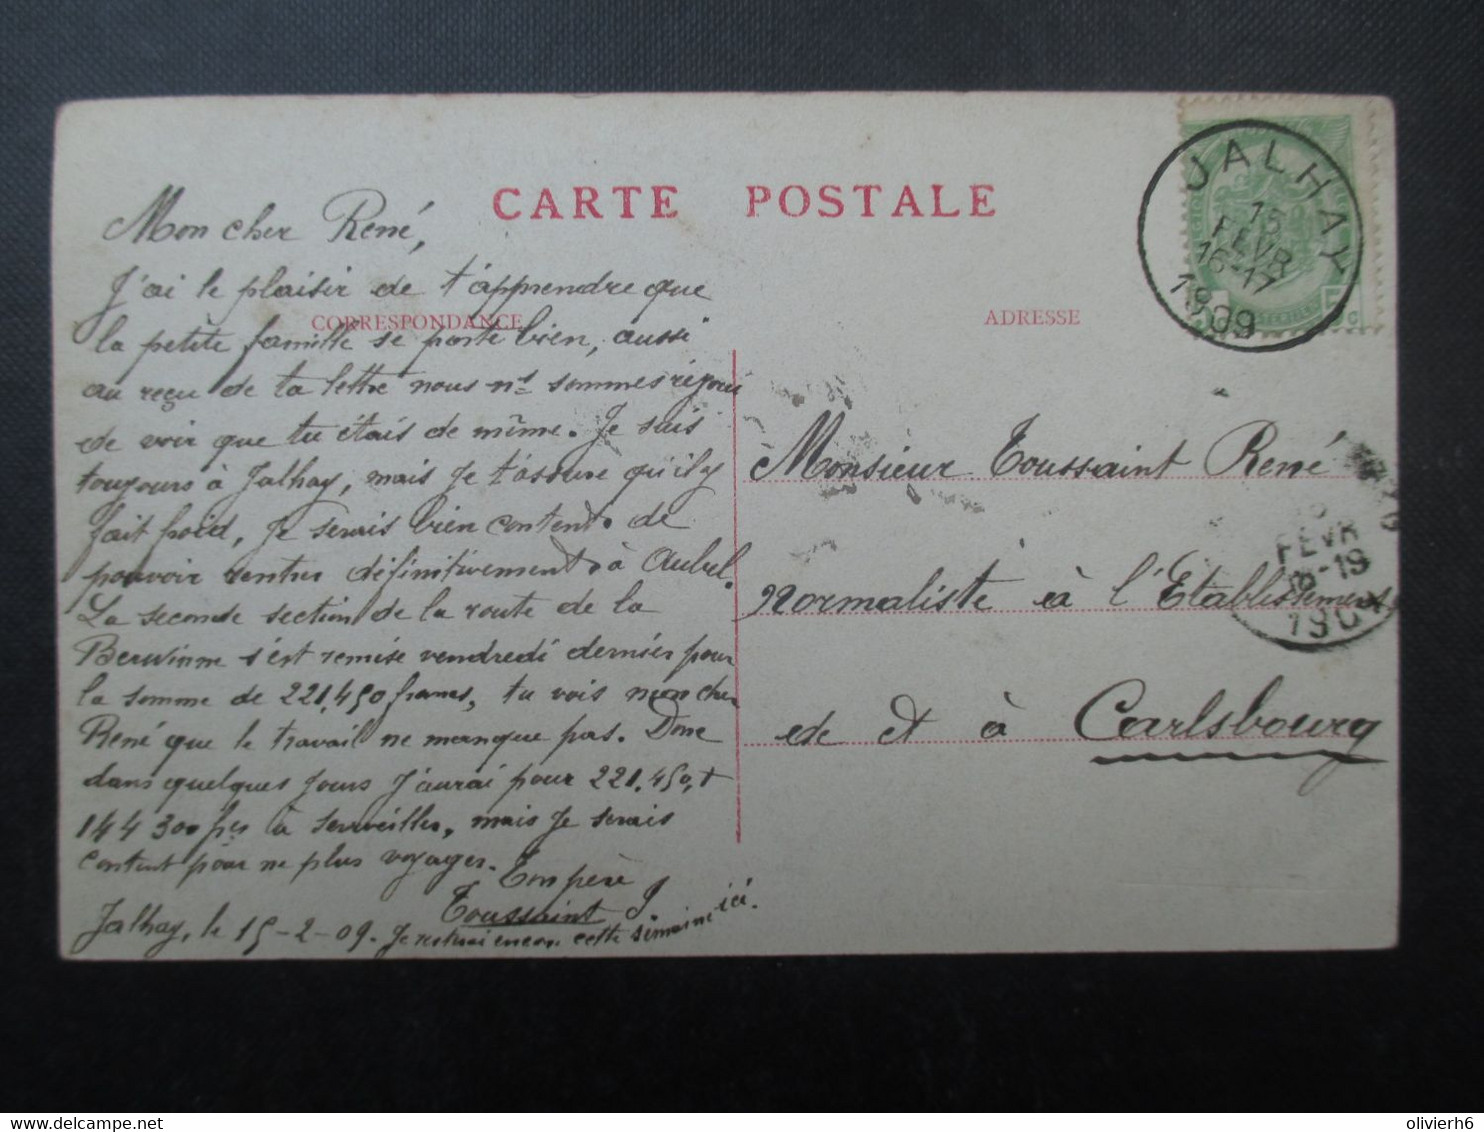 CARTE POSTALE
CORRESPONDANCE
ADRESSE
JALHAY
15
FEVR
16-17
1909
Mon cher René,
J'ai le plaisir de t'apprendre que
la petite famille se porte bien, aussi
au reçu de ta lettre nous ns sommes réjoui
de voir que tu étais de même. Je suis
toujours à Jalhay, mais je t'assure qu'il y
fait froid, je serais bien content de
pouvoir rentrer définitivement à Aubel.
La seconde section de la route de la
Berwinne s'est remise vendredi dernier pour
la somme de 221.450 francs, tu vois mon cher
René que le travail ne manque pas. Donc
dans quelques jours j'aurai pour 221.450, +
144 300 frs à surveiller, mais je serais
content pour ne plus voyager.
Ton père
Toussaint J.
Jalhay, le 15-2-09. Je resterai encore cette semaine ici.
Monsieur Toussaint René
normaliste à l'Etablissement
de et à Carlsbourg
FEVR
-19
190
olivierh6